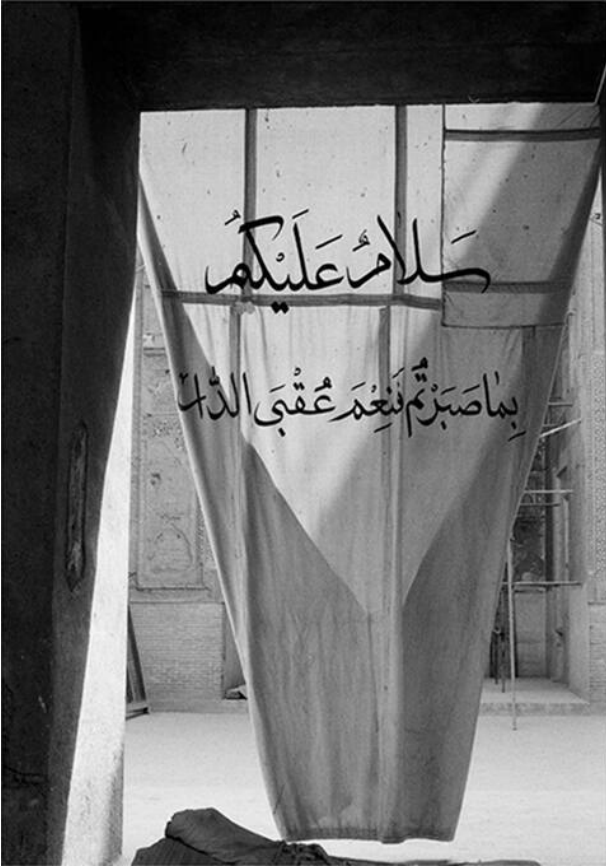 سَلَامٌ عَلَيْكُمُ
بِمَا صَبَرْتُمْ فَنِعْمَ عُقْبَى الدَّار